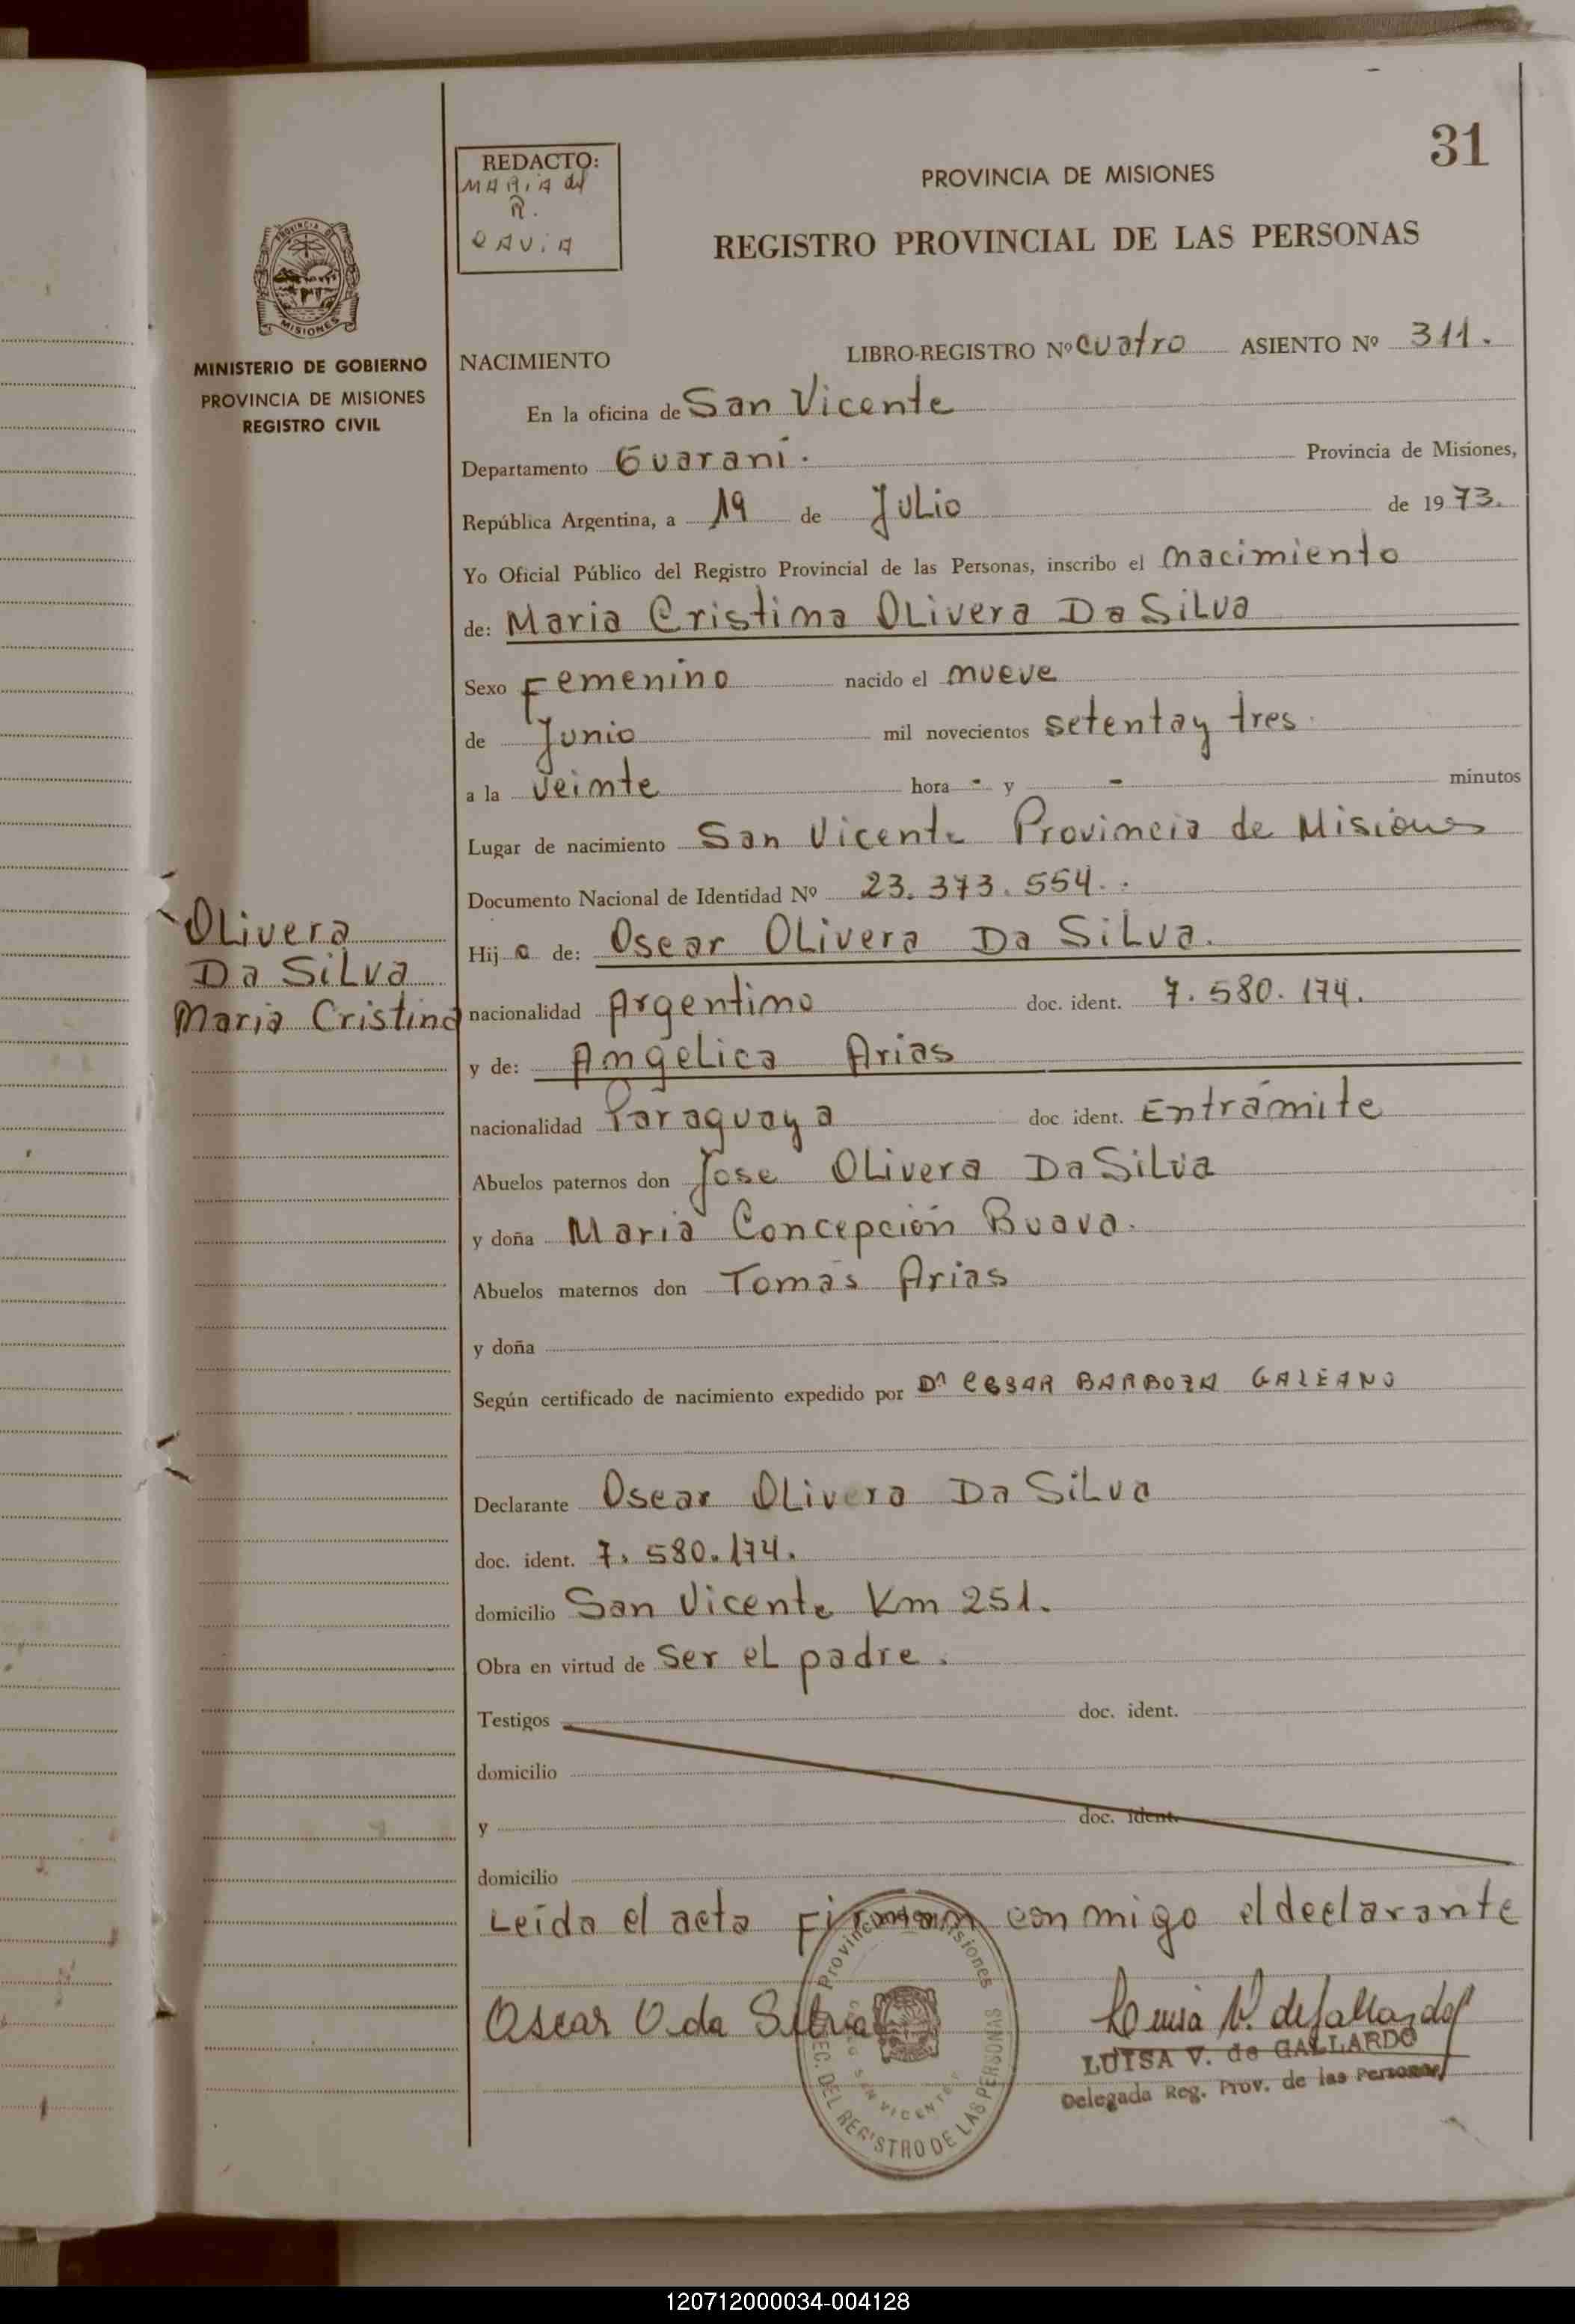 31
REDACTO:
MARIA del
R.
PROVINCIA DE MISIONES
REGISTRO PROVINCIAL DE LAS PERSONAS
PROVINCIA DE
MISIONES
MINISTERIO DE GOBIERNO
PROVINCIA DE MISIONES
REGISTRO CIVIL
NACIMIENTO LIBRO-REGISTRO Nº cuatro ASIENTO Nº 311.
En la oficina de San Vicente
Departamento Guaraní. Provincia de Misiones,
República Argentina, a 19 de Julio de 1973.
Yo Oficial Público del Registro Provincial de las Personas, inscribo el nacimiento
de: Maria Cristina Olivera Da Silva
Sexo Femenino nacido el nueve
de Junio mil novecientos setenta y tres
a la veinte hora - y - minutos
Lugar de nacimiento San Vicente Provincia de Misiones
Documento Nacional de Identidad Nº 23.373.554.
Olivera
Da Silva
Maria Cristina
Hij a de: Oscar Olivera Da Silva.
nacionalidad Argentino doc. ident. 7.580.174.
y de: Angelica Arias
nacionalidad Paraguaya doc. ident. Entrámite
Abuelos paternos don Jose Olivera Da Silva
y doña Maria Concepción Buava.
Abuelos maternos don Tomás Arias
y doña
Según certificado de nacimiento expedido por Dr CESAR BARBOZA GALEANO
Declarante Oscar Olivera Da Silva
doc. ident. 7.580.174.
domicilio San Vicente Km 251.
Obra en virtud de ser el padre.
Testigos doc. ident.
domicilio
y doc. ident.
domicilio
Leída el acta Firman conmigo el declarante
Oscar O. da Silvia
Luisa V. de Gallardo
LUISA V. de GALLARDO
Delegada Reg. Prov. de las Personas
Provincia de Misiones
DEL REGISTRO DE LAS PERSONAS
SAN VICENTE
120712000034-004128